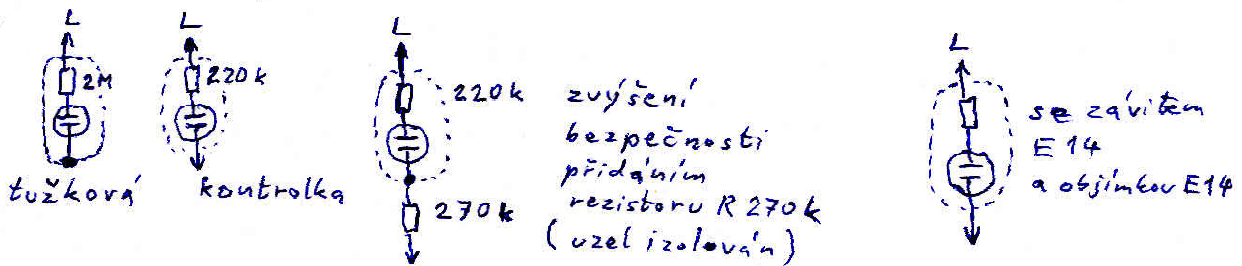 L
2M
tužková
L
220k
kontrolka
L
220k
270k
zvýšení
bezpečnosti
přidáním
rezistoru R 270k
(uzel izolován)
L
se závitem
E14
a objímkou E14